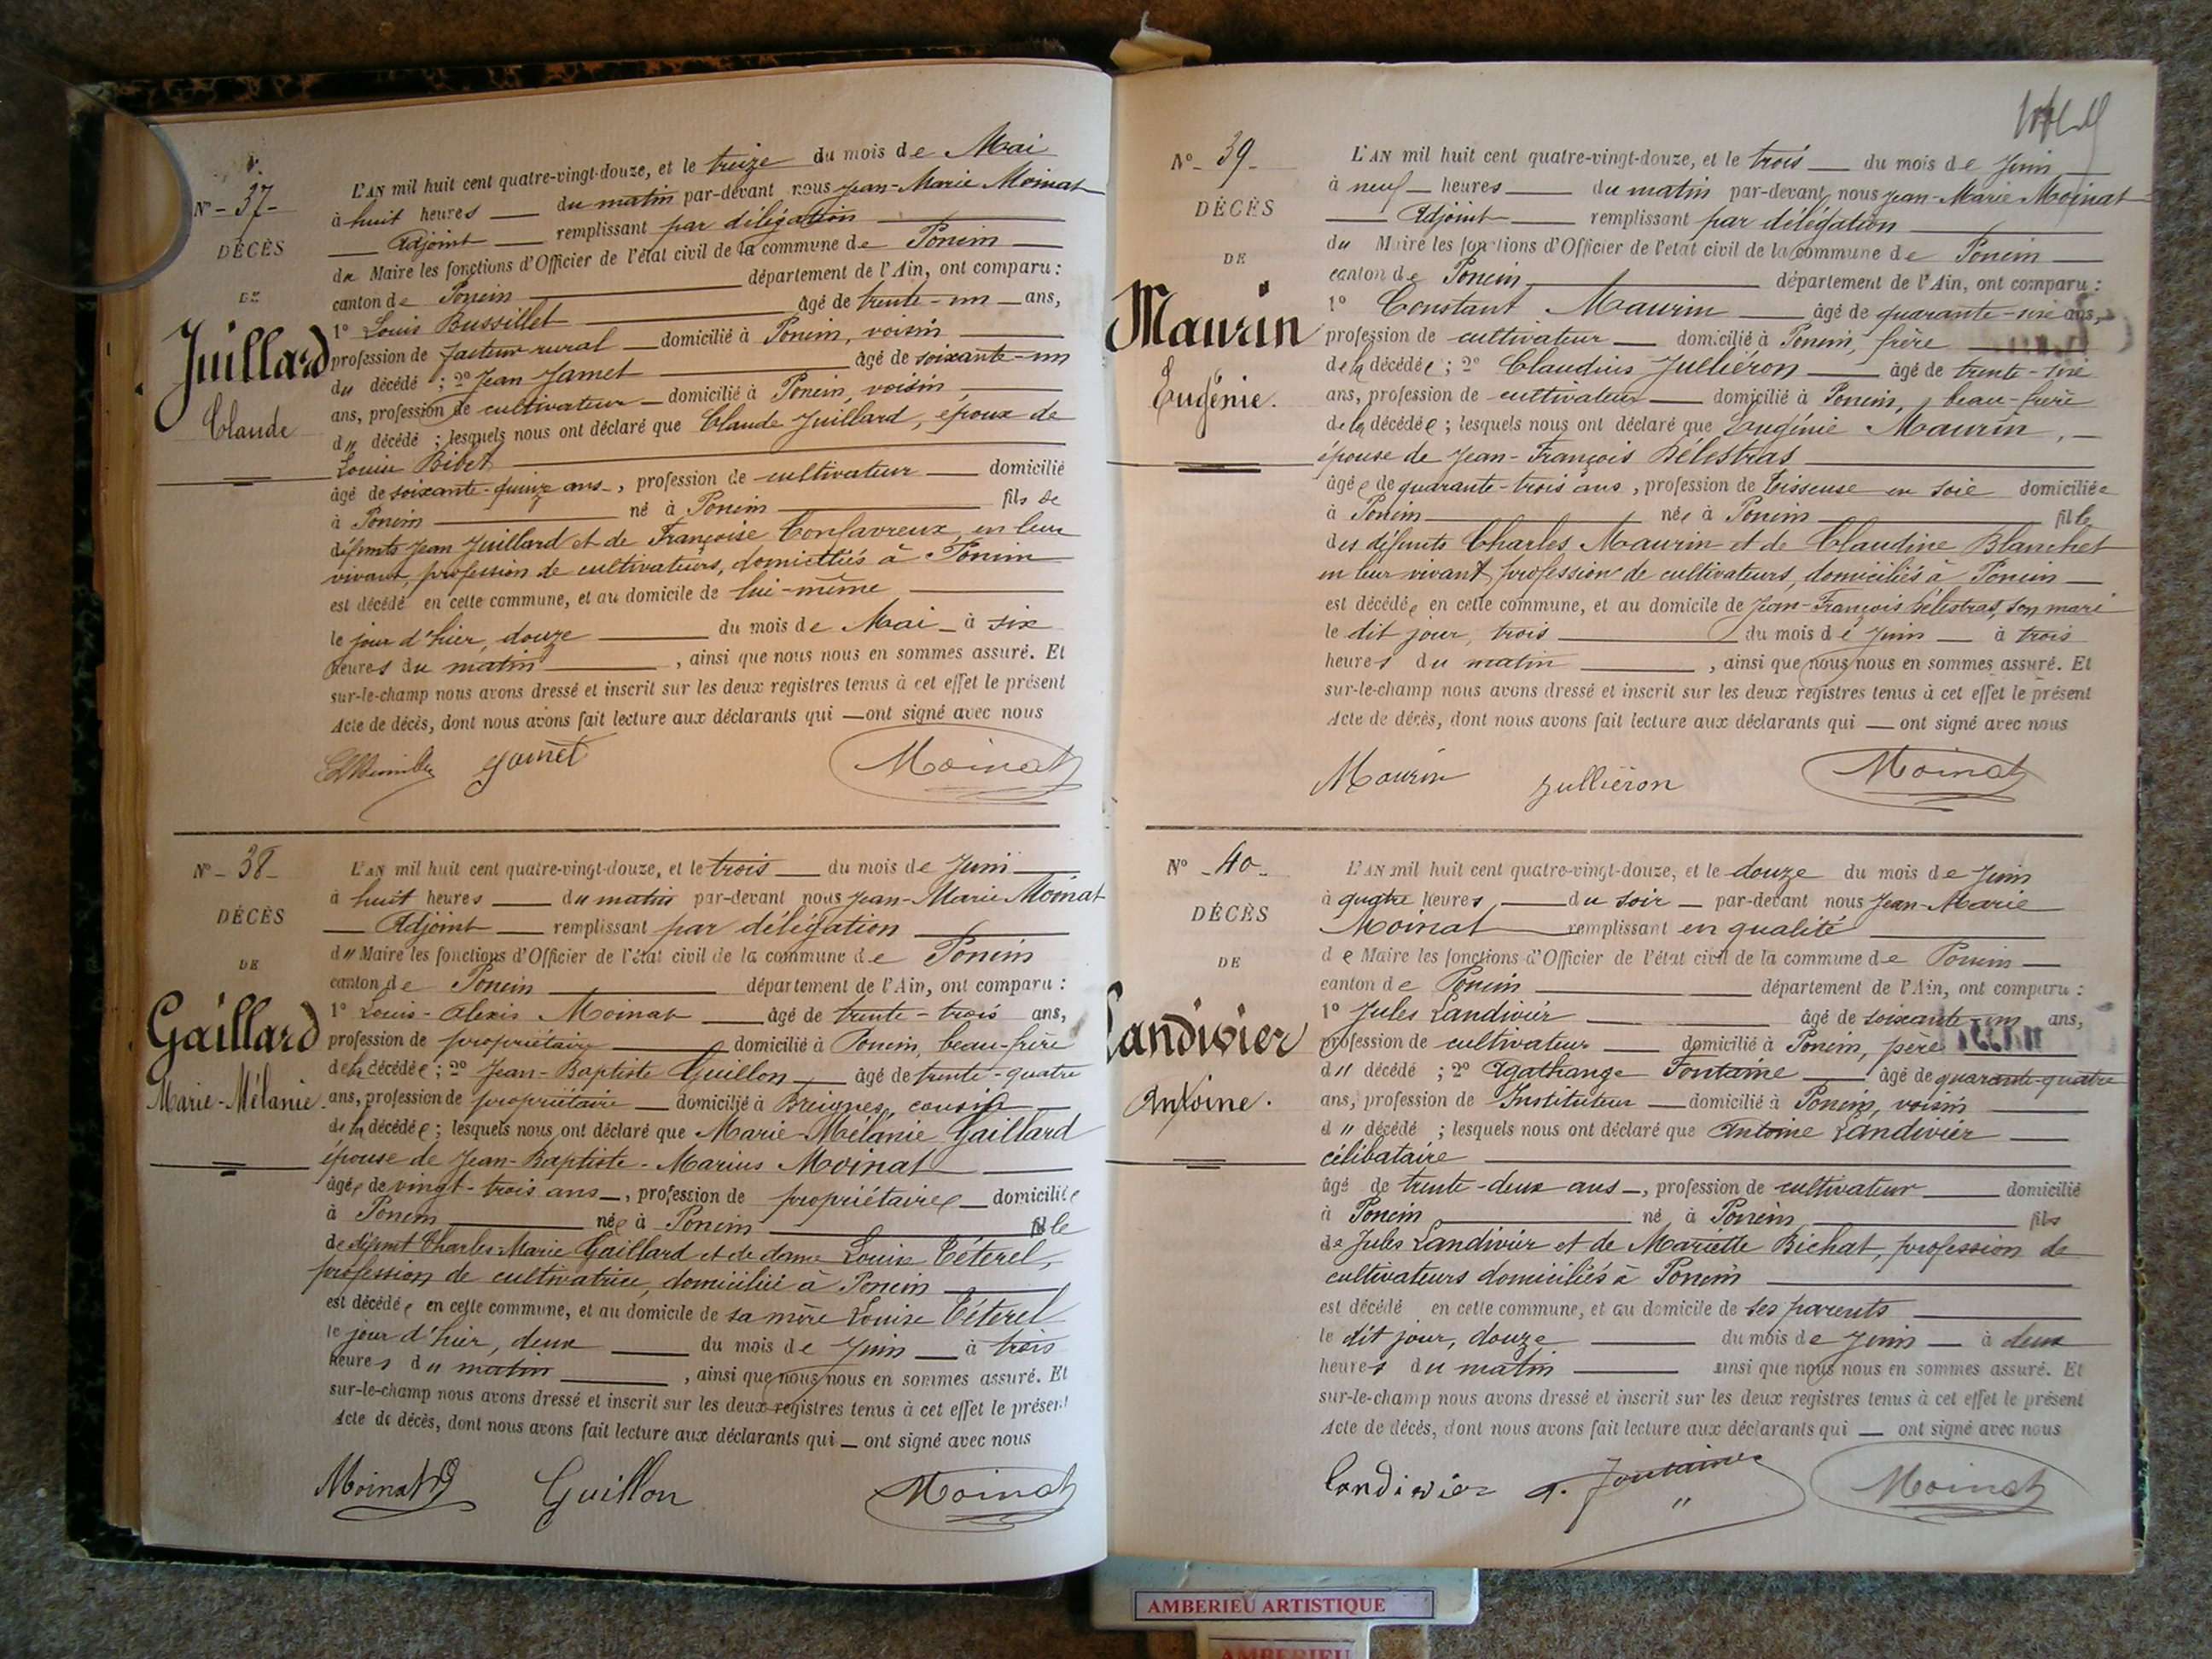 N° - 37 -
DÉCÈS
DE
Juillard
Claude
L'AN mil huit cent quatre-vingt-douze, et le treize du mois de Mai
à huit heures du matin par-devant nous Jean-Marie Moinat
Adjoint remplissant par délégation
du Maire les fonctions d'Officier de l'état civil de la commune de Poncin
canton de Poncin département de l'Ain, ont comparu :
1° Louis Bussillet âgé de trente-un ans,
profession de facteur rural domicilié à Poncin, voisin
du décédé ; 2° Jean Jamet âgé de soixante-un
ans, profession de cultivateur domicilié à Poncin, voisin
d" décédé ; lesquels nous ont déclaré que Claude Juillard, époux de
Louise Bibet
âgé de soixante-quinze ans, profession de cultivateur domicilié
à Poncin né à Poncin fils de
défunts Jean Juillard et de Françoise Confavreux, en leur
vivant, profession de cultivateurs, domiciliés à Poncin
est décédé en cette commune, et au domicile de lui-même
le jour d'hier, douze du mois de Mai à six
heures du matin, ainsi que nous nous en sommes assuré. Et
sur-le-champ nous avons dressé et inscrit sur les deux registres tenus à cet effet le présent
Acte de décès, dont nous avons fait lecture aux déclarants qui ont signé avec nous
Jamet Moinat
N° - 38 -
DÉCÈS
DE
Gaillard
Marie-Mélanie.
L'AN mil huit cent quatre-vingt-douze, et le trois du mois de Juin
à huit heures du matin par-devant nous Jean-Marie Moinat
Adjoint remplissant par délégation
d" Maire les fonctions d'Officier de l'état civil de la commune de Poncin
canton de Poncin département de l'Ain, ont comparu :
1° Louis-Alexis Moinat âgé de trente-trois ans,
profession de propriétaire domicilié à Poncin, beau-frère
de la décédée ; 2° Jean-Baptiste Guillon âgé de trente-quatre
ans, profession de propriétaire domicilié à Breignes, cousin
de la décédée ; lesquels nous ont déclaré que Marie-Mélanie Gaillard
épouse de Jean-Baptiste-Marius Moinat
âgée de vingt-trois ans, profession de propriétaire domiciliée
à Poncin née à Poncin fille
de défunt Charles Marie Gaillard et de dame Louise Téterel,
profession de cultivatrice, domiciliée à Poncin
est décédée en cette commune, et au domicile de sa mère Louise Téterel
le jour d'hier, deux du mois de Juin à trois
heures du matin, ainsi que nous nous en sommes assuré. Et
sur-le-champ nous avons dressé et inscrit sur les deux registres tenus à cet effet le présent
Acte de décès, dont nous avons fait lecture aux déclarants qui ont signé avec nous
Moinat Guillon Moinat
N° - 39 -
DÉCÈS
DE
Maurin
Eugénie.
L'AN mil huit cent quatre-vingt-douze, et le trois du mois de Juin
à neuf heures du matin par-devant nous Jean-Marie Moinat
Adjoint remplissant par délégation
du Maire les fonctions d'Officier de l'état civil de la commune de Poncin
canton de Poncin département de l'Ain, ont comparu :
1° Constant Maurin âgé de quarante-six ans,
profession de cultivateur domicilié à Poncin, frère
de la décédée ; 2° Claudius Julliéron âgé de trente-six
ans, profession de cultivateur domicilié à Poncin, beau-frère
de la décédée ; lesquels nous ont déclaré que Eugénie Maurin,
épouse de Jean-François Bélestras
âgée de quarante-trois ans, profession de Tisseuse en soie domiciliée
à Poncin née à Poncin fille
des défunts Charles Maurin et de Claudine Blanchet
en leur vivant profession de cultivateurs, domiciliés à Poncin
est décédée en cette commune, et au domicile de Jean-François Bélestras, son mari
le dit jour, trois du mois de Juin à trois
heures du matin, ainsi que nous nous en sommes assuré. Et
sur-le-champ nous avons dressé et inscrit sur les deux registres tenus à cet effet le présent
Acte de décès, dont nous avons fait lecture aux déclarants qui ont signé avec nous
Maurin Julliéron Moinat
N° - 40 -
DÉCÈS
DE
Landivier
Antoine.
L'AN mil huit cent quatre-vingt-douze, et le douze du mois de Juin
à quatre heures du soir par-devant nous Jean-Marie
Moinat remplissant en qualité
de Maire les fonctions d'Officier de l'état civil de la commune de Poncin
canton de Poncin département de l'Ain, ont comparu :
1° Jules Landivier âgé de soixante-un ans,
profession de cultivateur domicilié à Poncin, père
d" décédé ; 2° Agathange Fontaine âgé de quarante-quatre
ans, profession de Instituteur domicilié à Poncin, voisin
d" décédé ; lesquels nous ont déclaré que Antoine Landivier
célibataire
âgé de trente-deux ans, profession de cultivateur domicilié
à Poncin né à Poncin fils
de Jules Landivier et de Mariette Bichat, profession de
cultivateurs domiciliés à Poncin
est décédé en cette commune, et au domicile de ses parents
le dit jour, douze du mois de Juin à deux
heures du matin ainsi que nous nous en sommes assuré. Et
sur-le-champ nous avons dressé et inscrit sur les deux registres tenus à cet effet le présent
Acte de décès, dont nous avons fait lecture aux déclarants qui ont signé avec nous
Landivier a. Fontaine Moinat
AMBERIEU ARTISTIQUE
AMBERIEU